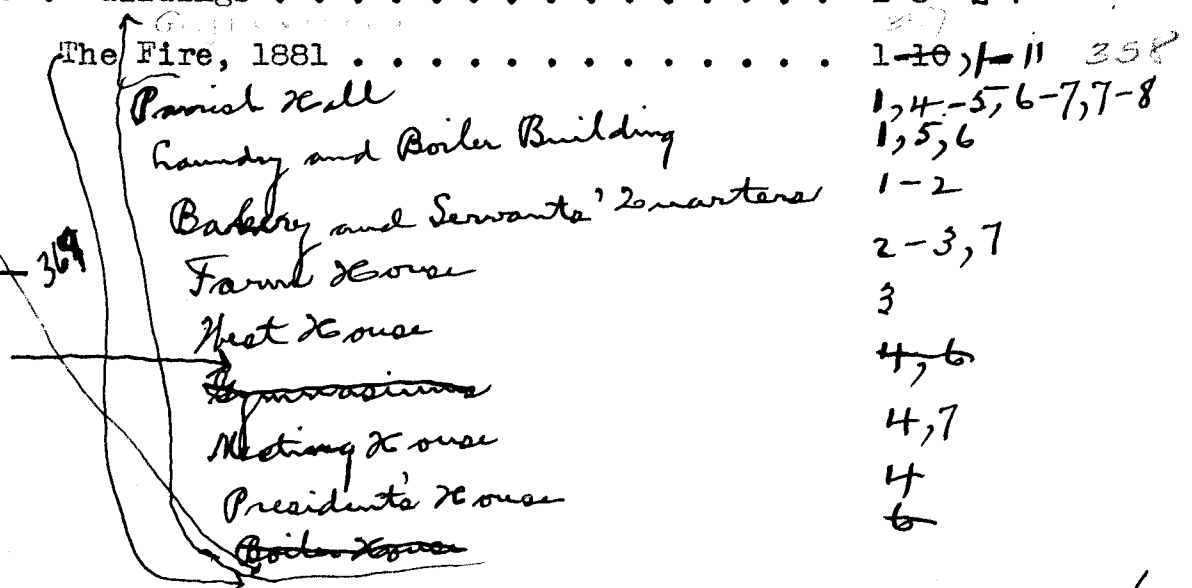 The Fire, 1881 . . . . . . . . . . . . . . . 1-10, 1-11 358
Parrish Hall 1, 4-5, 6-7, 7-8
Laundry and Boiler Building 1, 5, 6
Bakery and Servants' Quarters 1-2
Farm House 2-3, 7
369
West House 3
Gymnasiums 4, 6
Meeting House 4, 7
President's House 4
Boiler House 6